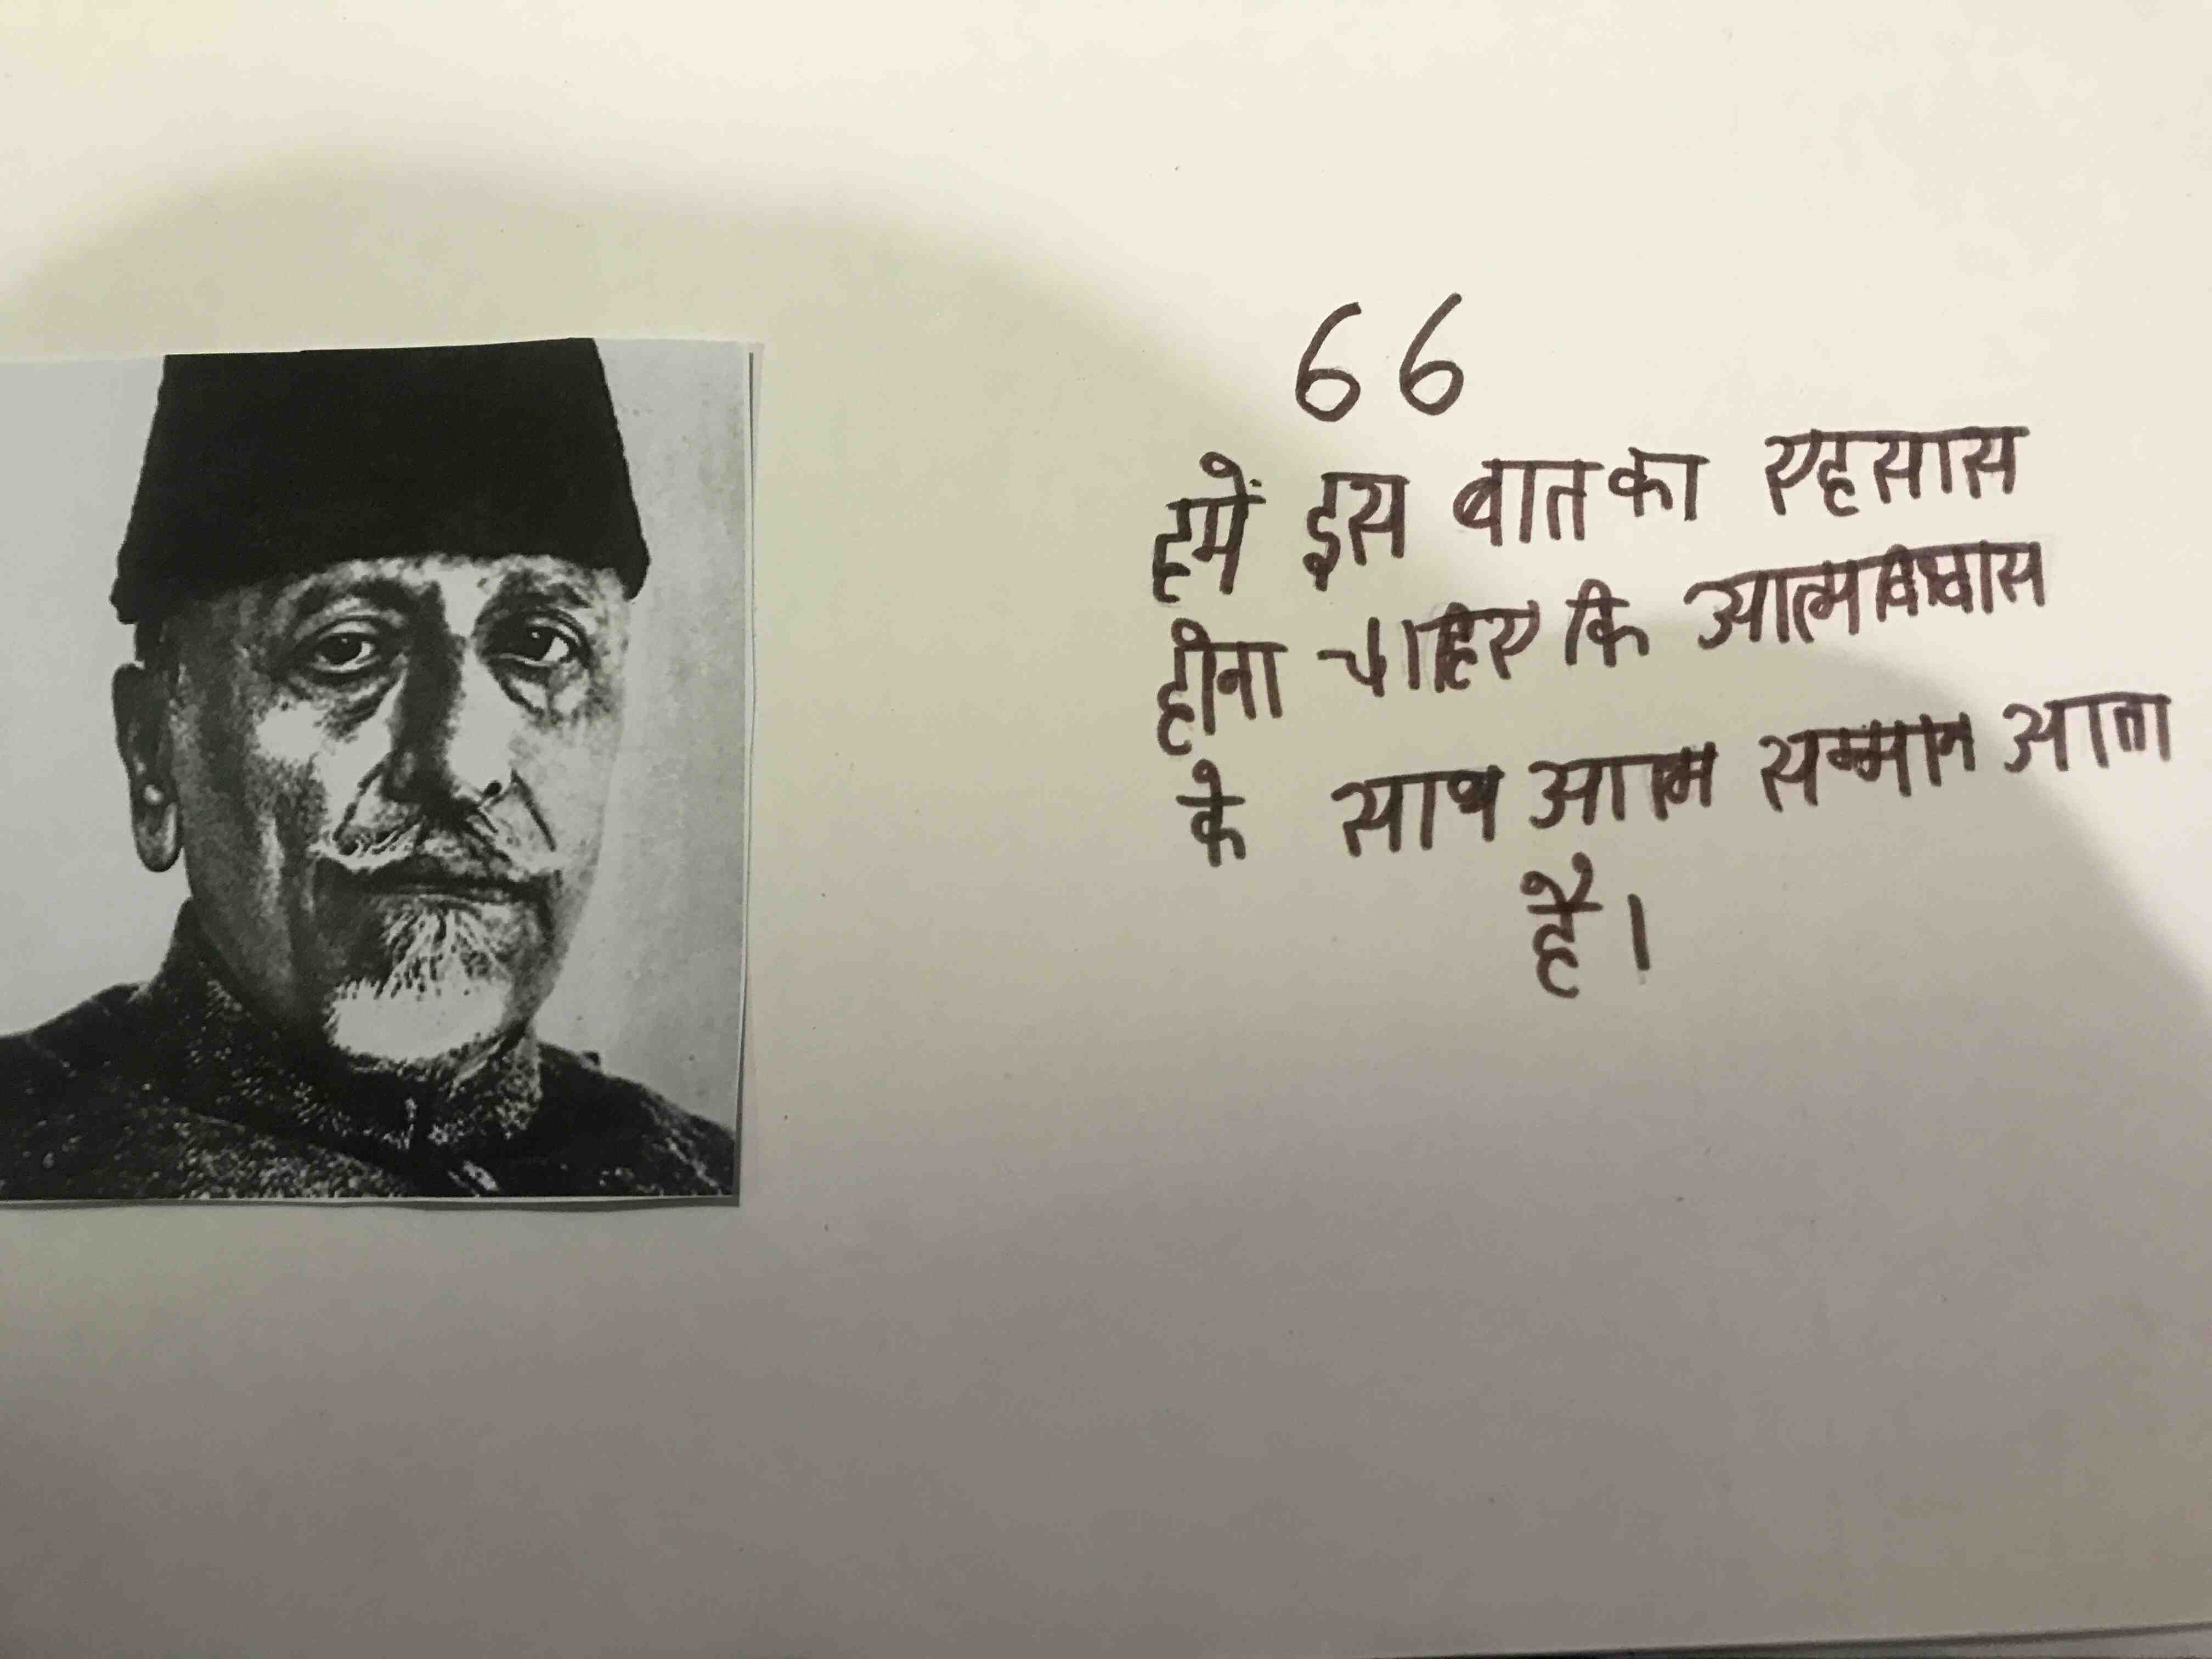 66
हमें इस बात का एहसास
होना चाहिए कि आत्मविश्वास
के साथ आत्म सम्मान आता
है।